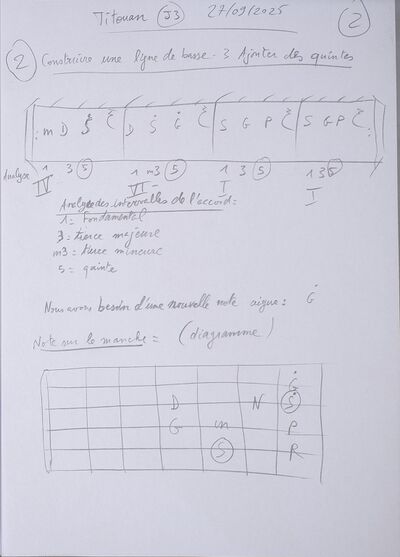 Titouan J3 27/09/2025 2
2 Construire une ligne de basse - 3 Ajouter des quintes
: m D Ṡ | D Ṡ Ġ | S G P | S G P :
Analyse 1 3 5 1 m3 5 1 3 5 1 3 5
IV VI- I I
Analyse des intervalles de l'accord =
1 = Fondamental
3 = tierce majeure
m3 = tierce mineure
5 = quinte
Nous avons besoin d'une nouvelle note aigue : Ġ
Note sur le manche = (diagramme)
Ġ
D N Ṡ
G m P
S R